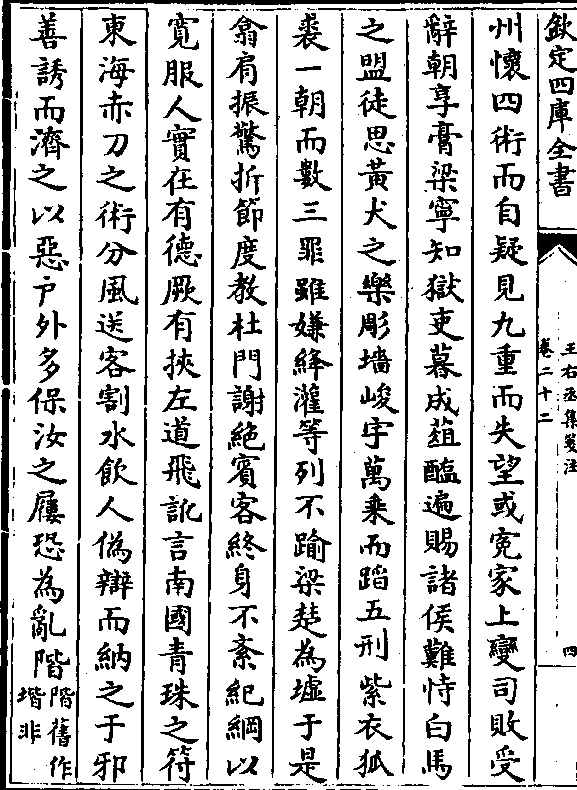 欽定四庫全書
王右丞集箋注
卷二十二
四
州懷四術而自疑見九重而失望或寃家上變司敗受
辭朝享膏粱寧知獄吏暮成葅醢遍賜諸侯難恃白馬
之盟徒思黃犬之樂彫墻峻宇萬乗而蹈五刑紫衣狐
裘一朝而數三罪雖嫌絳灌等列不踰梁楚為墟于是
翕肩振驚折節度教杜門謝絶賓客終身不紊紀綱以
寛服人實在有德厥有挾左道飛訛言南國青珠之符
東海赤刀之術分風送客割水飲人偽辯而納之于邪
善誘而濟之以惡户外多保汝之屨恐為亂階階舊作
堦非